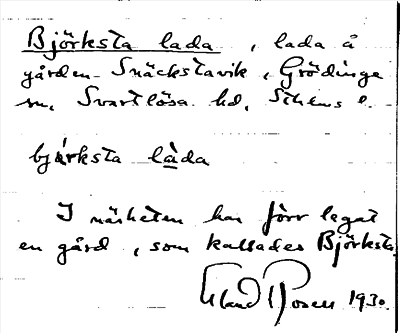 Björksta lada, lada å
gården Snäckstavik, Grödinge
sn, Svartlösa hd, Sthlms l.
bjärksta làda
I närheten har förr legat
en gård, som kallades Björksta.
Erland Rosell 1930.